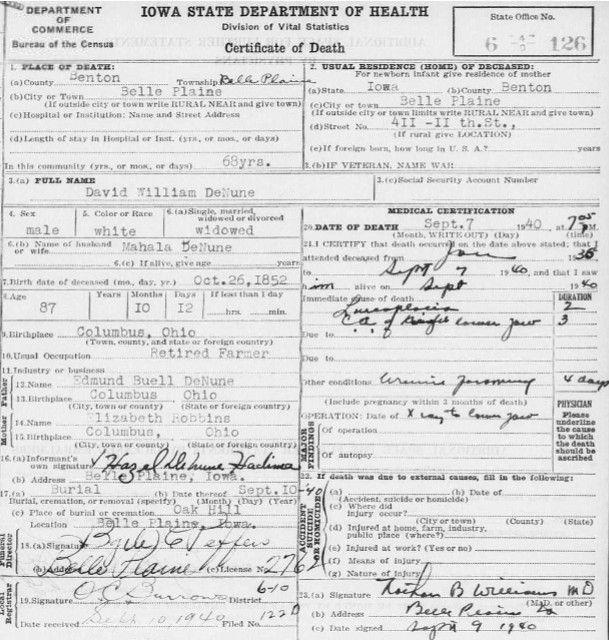 DEPARTMENT OF COMMERCE
Bureau of the Census
IOWA STATE DEPARTMENT OF HEALTH
Division of Vital Statistics
Certificate of Death
State Office No.
6 126
1. PLACE OF DEATH:
(a) County Benton Township Belle Plaine
(b) City or Town Belle Plaine
(If outside city or town write RURAL NEAR and give town)
(c) Hospital or Institution: Name and Street Address
(d) Length of stay in Hospital or Inst. (yrs., or mos., or days)
In this community (yrs., mos., or days) 68yrs.
2. USUAL RESIDENCE (HOME) OF DECEASED:
For newborn infant give residence of mother
(a) State Iowa (b) County Benton
(c) City or town Belle Plaine
(If outside city or town limits write RURAL NEAR and give town)
(d) Street No. 4II -II th.St.,
(If rural give LOCATION)
(e) If foreign born, how long in U. S. A.? years
3. (a) FULL NAME
David William DeNune
3. (b) IF VETERAN, NAME WAR
3. (c) Social Security Account Number
4. Sex
male
5. Color or Race
white
6. (a) Single, married, widowed or divorced
widowed
6. (b) Name of husband or wife Mahala DeNune
6. (c) If alive, give age years
7. Birth date of deceased (mo., day, yr.) Oct.26,1852
8. Age Years Months Days If less than 1 day
87 10 12 hrs. min.
9. Birthplace Columbus, Ohio
(Town, county, and state or foreign country)
10. Usual Occupation Retired Farmer
11. Industry or business
Father
12. Name Edmund Buell DeNune
13. Birthplace Columbus Ohio
(City, town or county) (State or foreign country)
Mother
14. Name Elizabeth Robbins
15. Birthplace Columbus, Ohio
(City, town or county) (State or foreign country)
16. (a) Informant's own signature Hazel DeNune
(b) Address Belle Plaine, Iowa.
17. (a) Burial (b) Date thereof Sept.10-40
Burial, cremation, or removal (specify) (Month) (Day) (Year)
(c) Place of burial or cremation Oak Hill
Location Belle Plaine, Iowa.
Funeral Director
18. (a) Signature
(b) Address Belle Plaine (c) License No. 2762
Local Registrar
19. Signature O C Burrows District 6-10
Date received 1940 Filed No. 122D
MEDICAL CERTIFICATION
20. DATE OF DEATH Sept.7 1940 at
(Month, WRITE OUT) (Day) (time)
21. I CERTIFY that death occurred on the above date stated; that I
attended deceased from Jan 1936
to Sept 7 1940, and that I saw
him alive on Sept 1940
Immediate cause of death DURATION
2
Ca of Right lower jaw 3
Due to
Due to
Other conditions 4 days
(Include pregnancy within 3 months of death)
MAJOR FINDINGS
OPERATION: Date of X ray to lower jaw
Of operation
Of autopsy
PHYSICIAN
Please underline the cause to which the death should be ascribed
ACCIDENT SUICIDE OR HOMICIDE
22. If death was due to external causes, fill in the following:
(a) (b) Date of
(Accident, suicide or homicide)
(c) Where did injury occur?
(City or town) (County) (State)
(d) Injured at home, farm, industry, public place (where?)
(e) Injured at work? (Yes or no)
(f) Means of injury
(g) Nature of injury
23. (a) Signature Nathan B Williams MD
(M.D. or other)
(b) Address Belle Plaine Ia
(c) Date signed Sept 9 1940